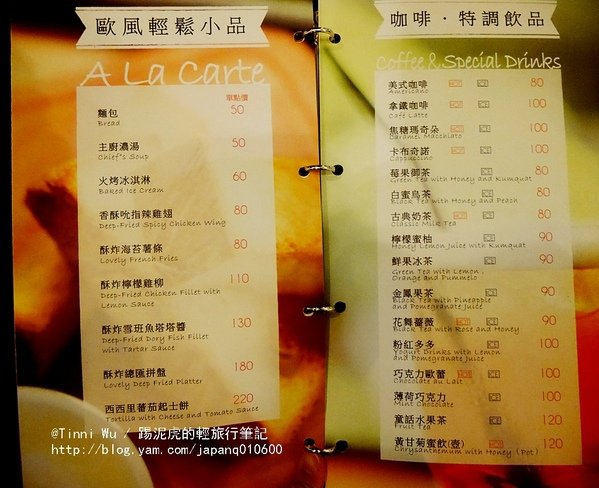 歐風輕鬆小品
A La Carte
單點價
麵包 50
Bread
主廚濃湯 50
Chief's Soup
火烤冰淇淋 60
Baked Ice Cream
香酥吮指辣雞翅 80
Deep-Fried Spicy Chicken Wing
酥炸海苔薯條 80
Lovely French Fries
酥炸檸檬雞柳 110
Deep-Fried Chicken Fillet with
Lemon Sauce
酥炸雪斑魚塔塔醬 130
Deep-Fried Dory Fish Fillet
with Tartar Sauce
酥炸總匯拼盤 180
Lovely Deep Fried Platter
西西里蕃茄起士餅 220
Tortilla with Cheese and Tomato Sauce
咖啡·特調飲品
Coffee & Special Drinks
美式咖啡 HOT ICE 80
Americano
拿鐵咖啡 HOT ICE 100
Café Latte
焦糖瑪奇朵 HOT ICE 100
Caramel Macchiato
卡布奇諾 HOT ICE 100
Cappuccino
莓果御茶 ICE 80
Green Tea with Honey and Kumquat
白蜜烏茶 ICE 80
Black Tea with Honey and Peach
古典奶茶 HOT ICE 80
Classic Milk Tea
檸檬蜜柚 ICE 90
Honey Lemon Juice with Kumquat
鮮果冰茶 ICE 90
Green Tea with Lemon,
Orange and Pummelo
金鳳果茶 ICE 90
Black Tea with Pineapple
and Pomegranate Juice
花舞薔薇 HOT ICE 90
Black Tea with Rose and Honey
粉紅多多 ICE 100
Yogurt Drinks with Lemon
and Pomegranate Juice
巧克力歐蕾 HOT ICE 100
Chocolate au Lait
薄荷巧克力 ICE 100
Mint Chocolate
童話水果茶 HOT ICE 120
Fruit Tea
黃甘菊蜜飲(壺) HOT ICE 120
Chrysanthemum with Honey (Pot)
@Tinni Wu / 踢泥虎的輕旅行筆記
http://blog.yam.com/japanq010600